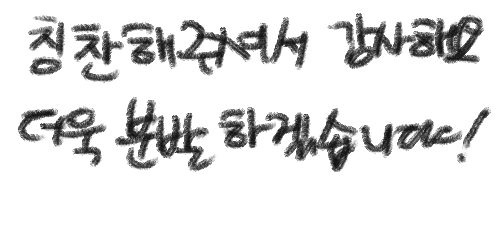 칭찬해주셔서 감사해요
더욱 분발 하겠습니다!